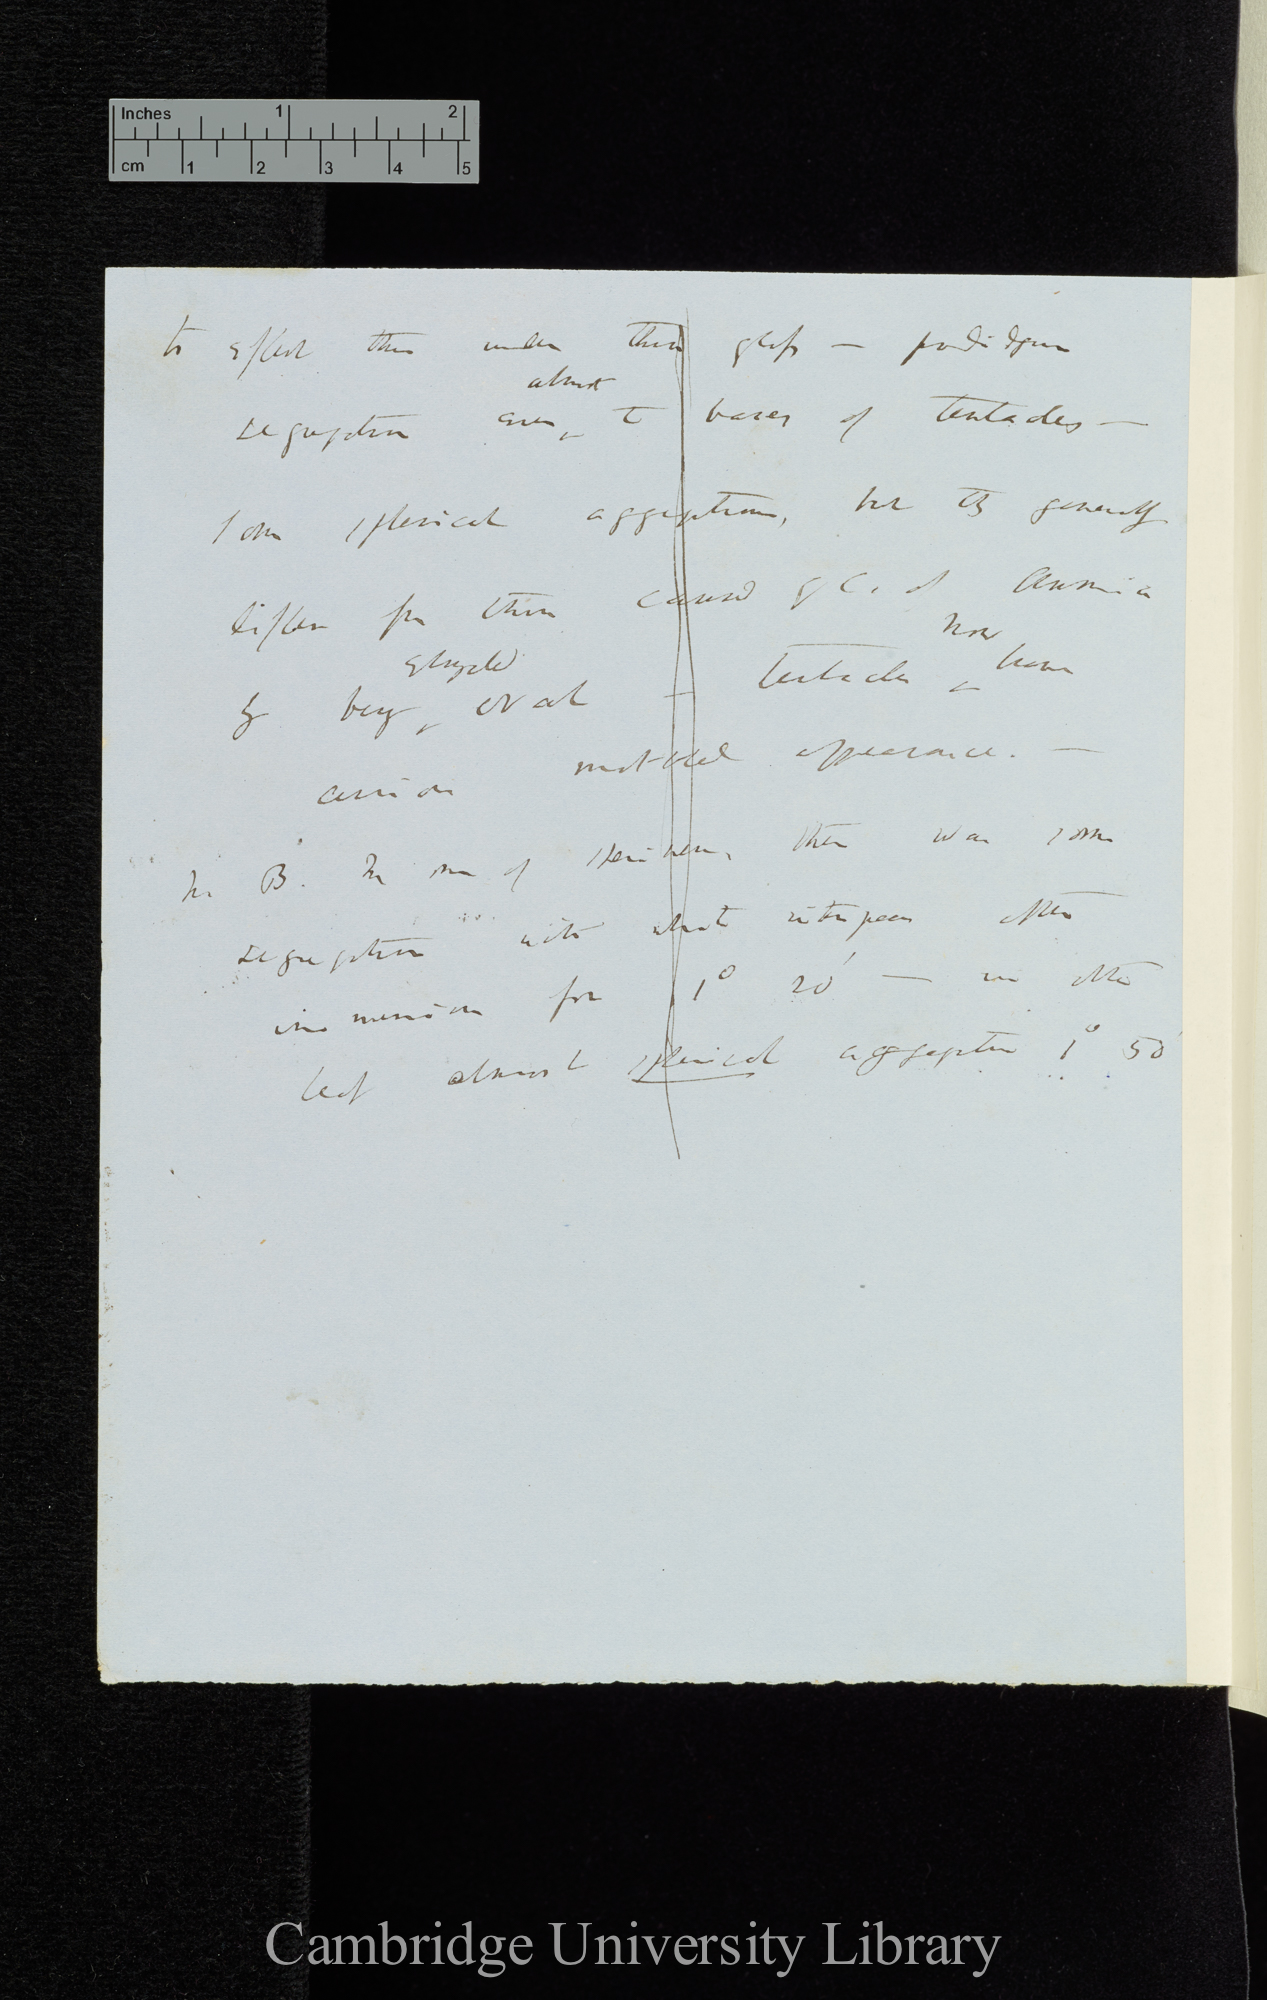 Inches 1 2
cm 1 2 3 4 5
to effect this under thin glass — prodigious
almost
segregation even ‸ to bases of tentacles —
some spherical aggregations, but they generally
differ from those caused by C. of Ammonia
elongated now
by being ‸ oval — tentacles ‸ have
mottled appearance. —
N. B. In one of specimens, there was some
segregation with after
immersion for 1° 20' — in other
leaf almost spherical aggregation 1° 50'
Cambridge University Library